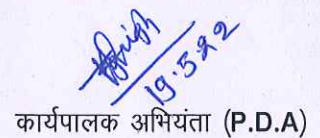 19.5.22
कार्यपालक अभियंता (P.D.A)